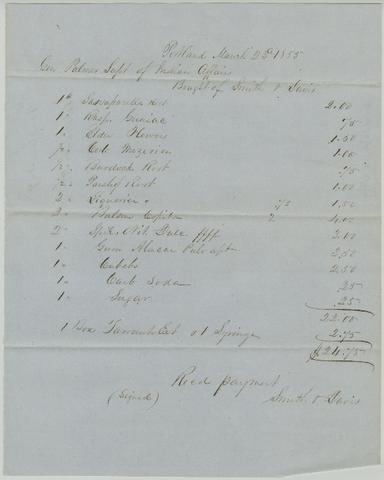 Portland March 23d 1855
Gen Palmer Supt of Indian Affairs
Bought of Smith & Davis
1 lb Sassaparella Root 2.00
1 " Rasp. Guaiac 75
1 " Elder Flowers 1.50
1/2 " Cort Mezerion 1.00
1/2 " Burdock Root 75
1/2 " Parsley Root 1.00
2 " Liquorice " 75 1.50
2 " Balsam Copiba 2 4.00
2 " Spts Nit. Dulc 2.00
1 " Gum Alucac Pulv 2.50
1 " Cubebs 2.50
1 " Carb Soda .25
1 " Sugar .25
22.00
1 Box Tarrants Ext & 1 Syringe 2.75
$24.75
Recd payment
(Signed) Smith & Davis